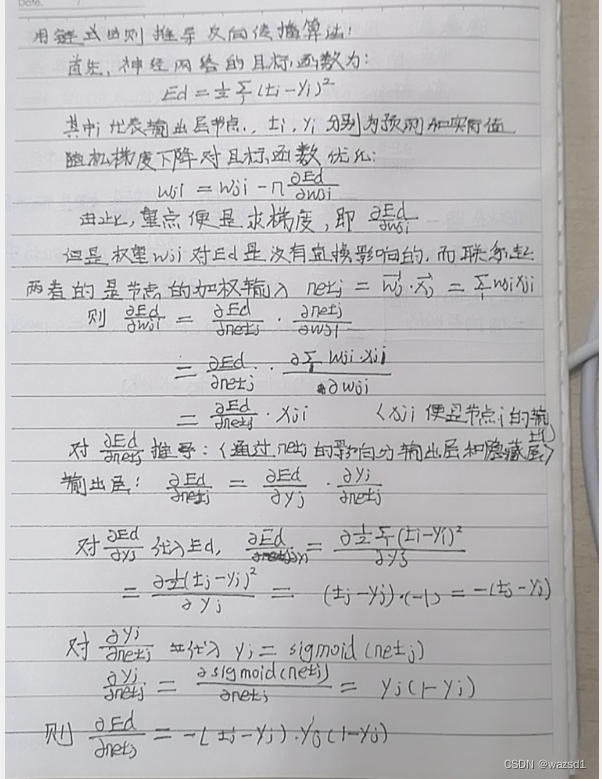 Date.
用链式法则推导反向传播算法:
首先,神经网络的目标函数为:
Ed = ½ Σi (ti-yi)²
其中i代表输出层节点, ti, yi 分别为预测和实际值
随机梯度下降对目标函数优化:
wji = wji - η ∂Ed/∂wji
由此,重点便是求梯度,即 ∂Ed/∂wji
但是权重wji对Ed是没有直接影响的,而联系起
两者的是节点的加权输入 netj = w⃗j·x⃗j = Σi wji xji
则 ∂Ed/∂wji = ∂Ed/∂netj · ∂netj/∂wji
= ∂Ed/∂netj · ∂Σi wji·xji/∂wji
= ∂Ed/∂netj · xji (xji 便是节点i的输
出)
对 ∂Ed/∂netj 推导:(通过netj的影响分输出层和隐藏层)
输出层: ∂Ed/∂netj = ∂Ed/∂yj · ∂yj/∂netj
对 ∂Ed/∂yj 代入Ed, ∂Ed/ = ∂½Σi(ti-yi)²/∂yj
= ∂½(tj-yj)²/∂yj = (tj-yj)·(-1) = -(tj-yj)
对 ∂yj/∂netj 代入 yj = sigmoid(netj)
∂yj/∂netj = ∂sigmoid(netj)/∂netj = yj(1-yj)
则 ∂Ed/∂netj = -(tj-yj)·yj(1-yj)
CSDN @wazsd1